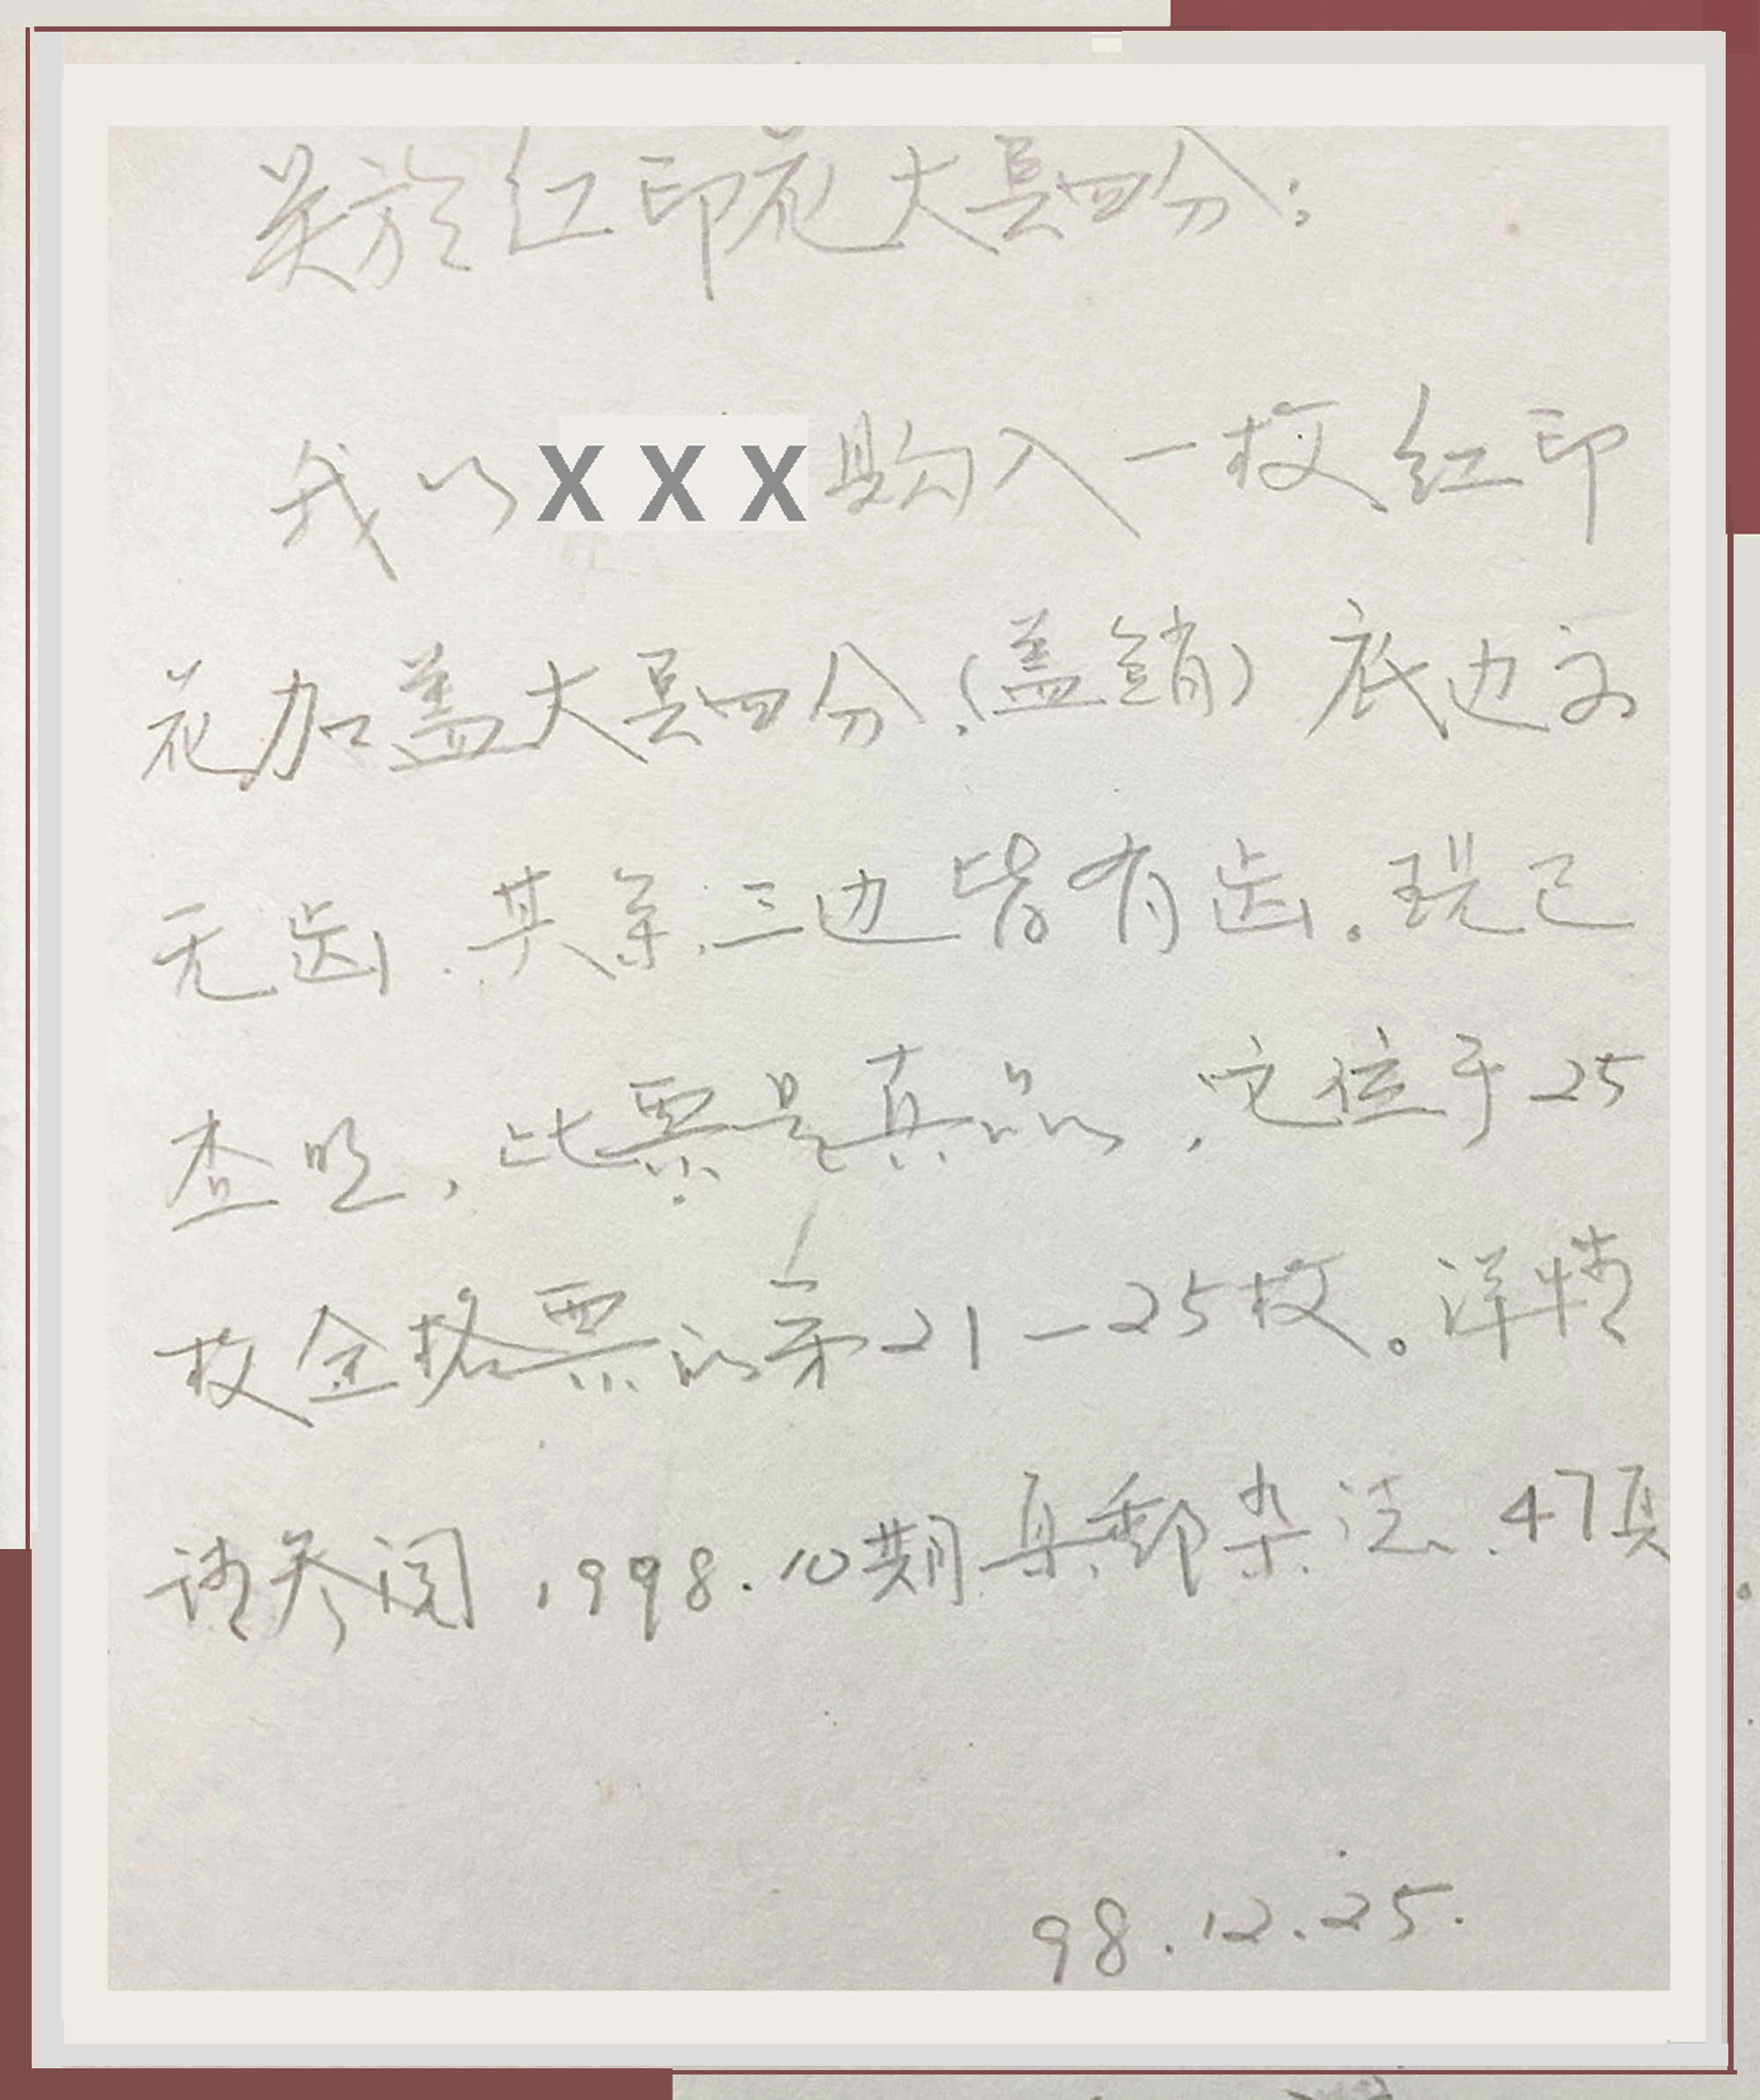 关於红印花大号四分：
我以XXX购入一枚红印
花加盖大号四分.(盖销)底边为
无齿.其余三边皆有齿。现已
查明,此票是真品,它位于25
枚全格票的第21-25枚。详情
请参阅,1998.10期集邮杂志.47页
98.12.25.